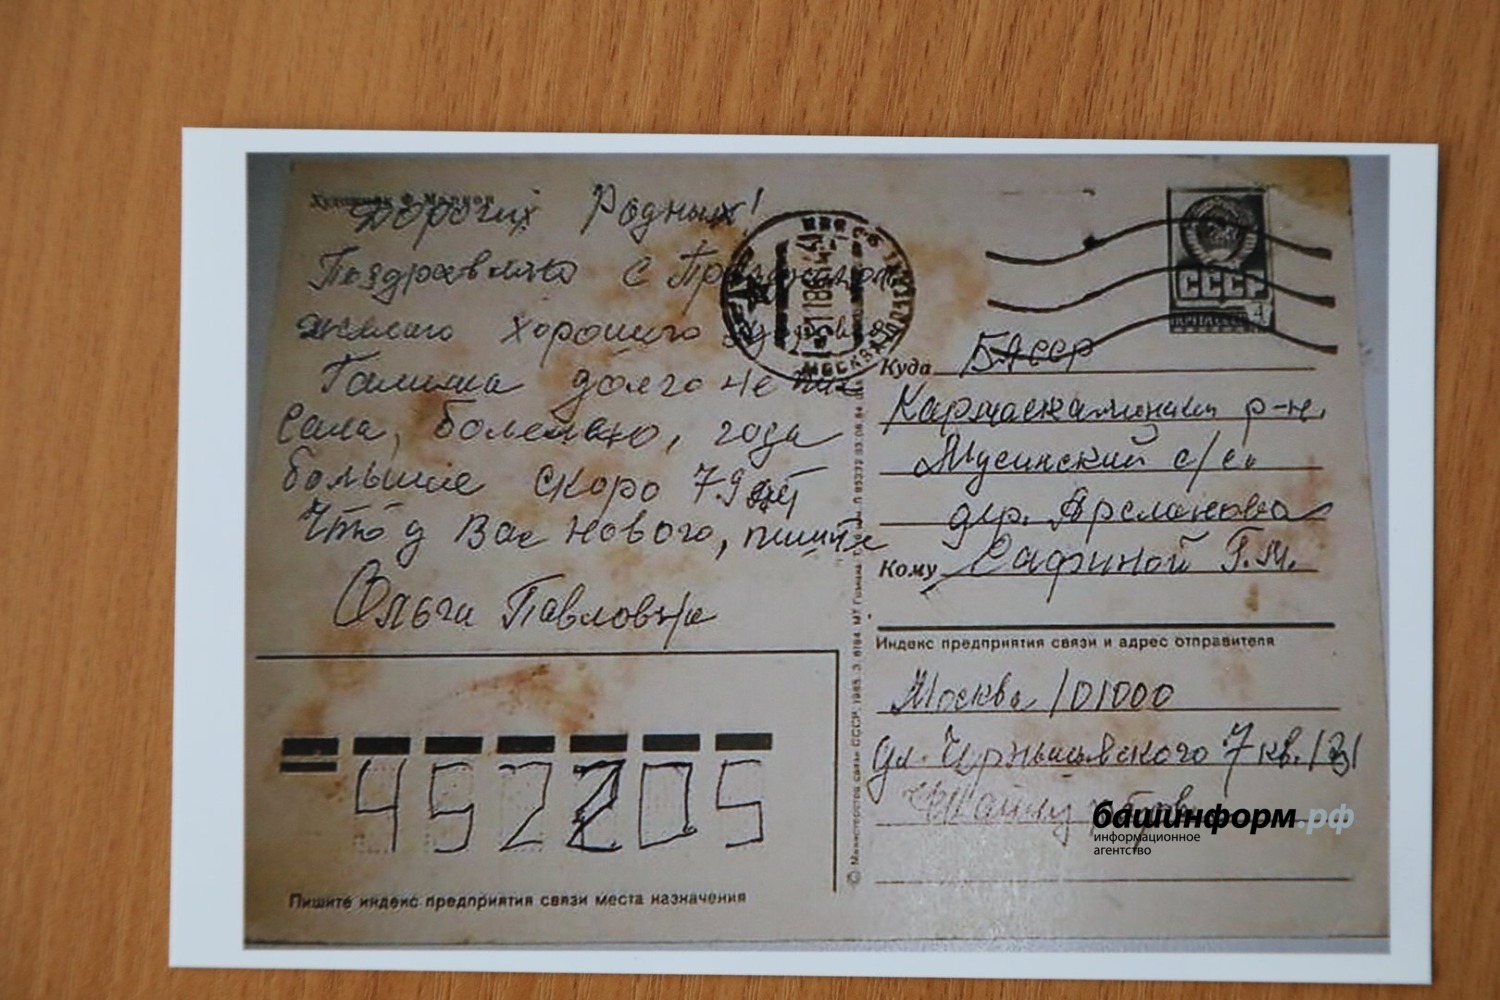 Художник Ф. Марков
Дорогих Родных!
Поздравляю с Праздником
желаю хорошего здоровья
Галима долго не пи
сала, болею, года
большие скоро 79 лет
Что у Вас нового, пишите
Ольга Павловна
СССР
ПОЧТА
4
МОСКВА
Куда БАССР
Кармаскалинский р-н,
Мусинский с/с.
дер. Арсланово
Кому Сафиной Г.М.
Индекс предприятия связи и адрес отправителя
Москва 101000
ул. Чернышевского 7 кв. 131
452205
Пишите индекс предприятия связи места назначения
© Министерство связи СССР. 1985. З. 6184. МТ Гознака.
башинформ.рф
информационное
агентство